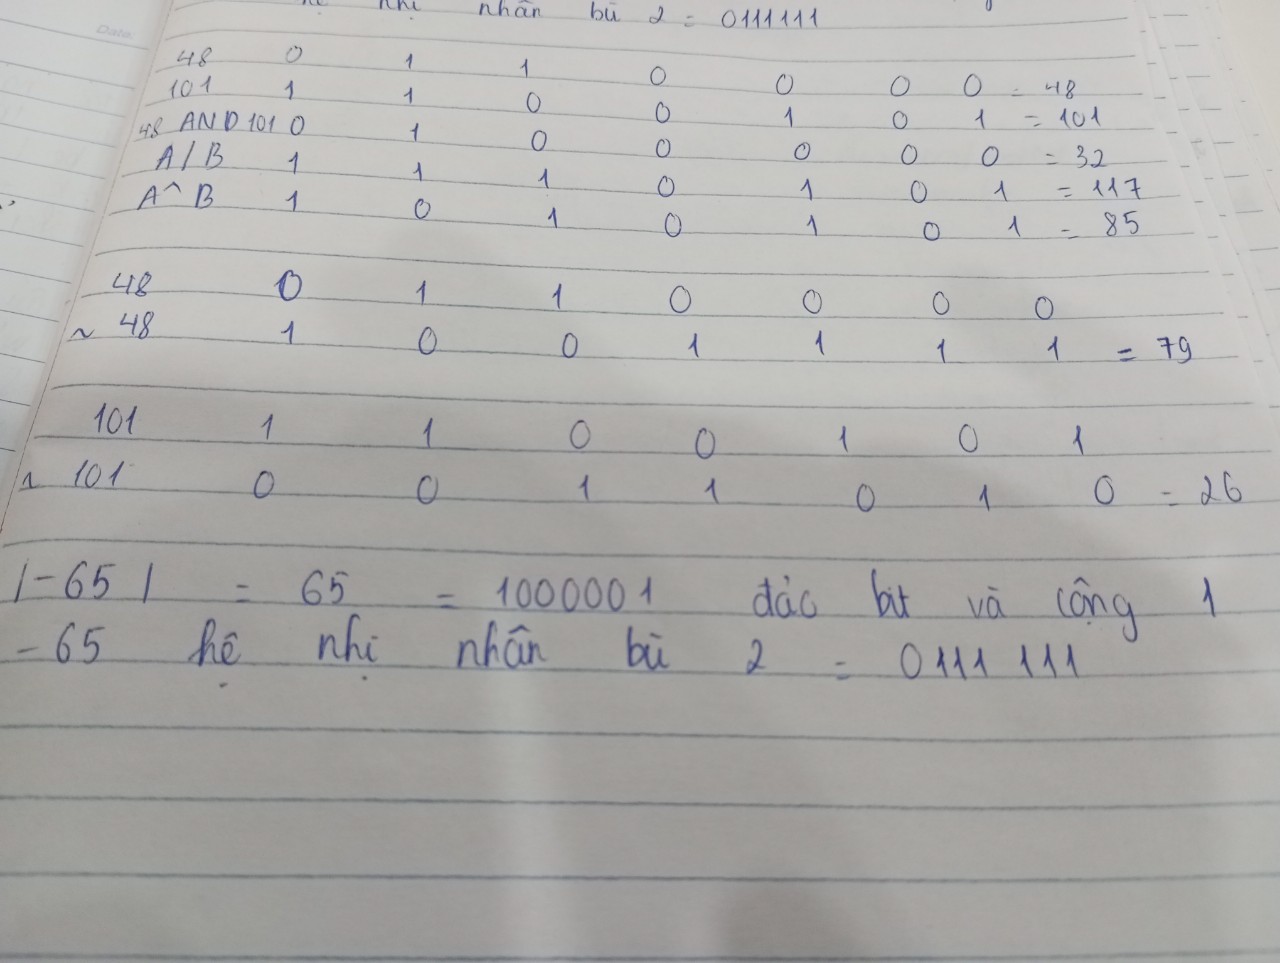 nhị nhân bù 2 = 0111111
Date.
48 0 1 1 0 0 0 0 = 48
101 1 1 0 0 1 0 1 = 101
48 AND 101 0 1 0 0 0 0 0 = 32
A/B 1 1 1 0 1 0 1 = 117
A^B 1 0 1 0 1 0 1 = 85
48 0 1 1 0 0 0 0
~ 48 1 0 0 1 1 1 1 = 79
101 1 1 0 0 1 0 1
~ 101 0 0 1 1 0 1 0 = 26
|-65| = 65 = 1000001 đảo bit và cộng 1
-65 hệ nhị nhân bù 2 = 0111 111